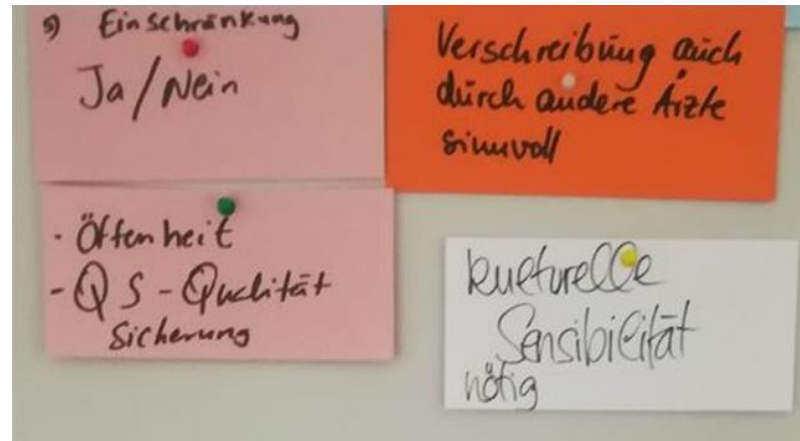 5) Einschränkung
Ja/Nein
Verschreibung auch
durch andere Ärzte
sinnvoll
- Öffenheit
- QS - Qualität
Sicherung
kulturelle
Sensibilität
nötig